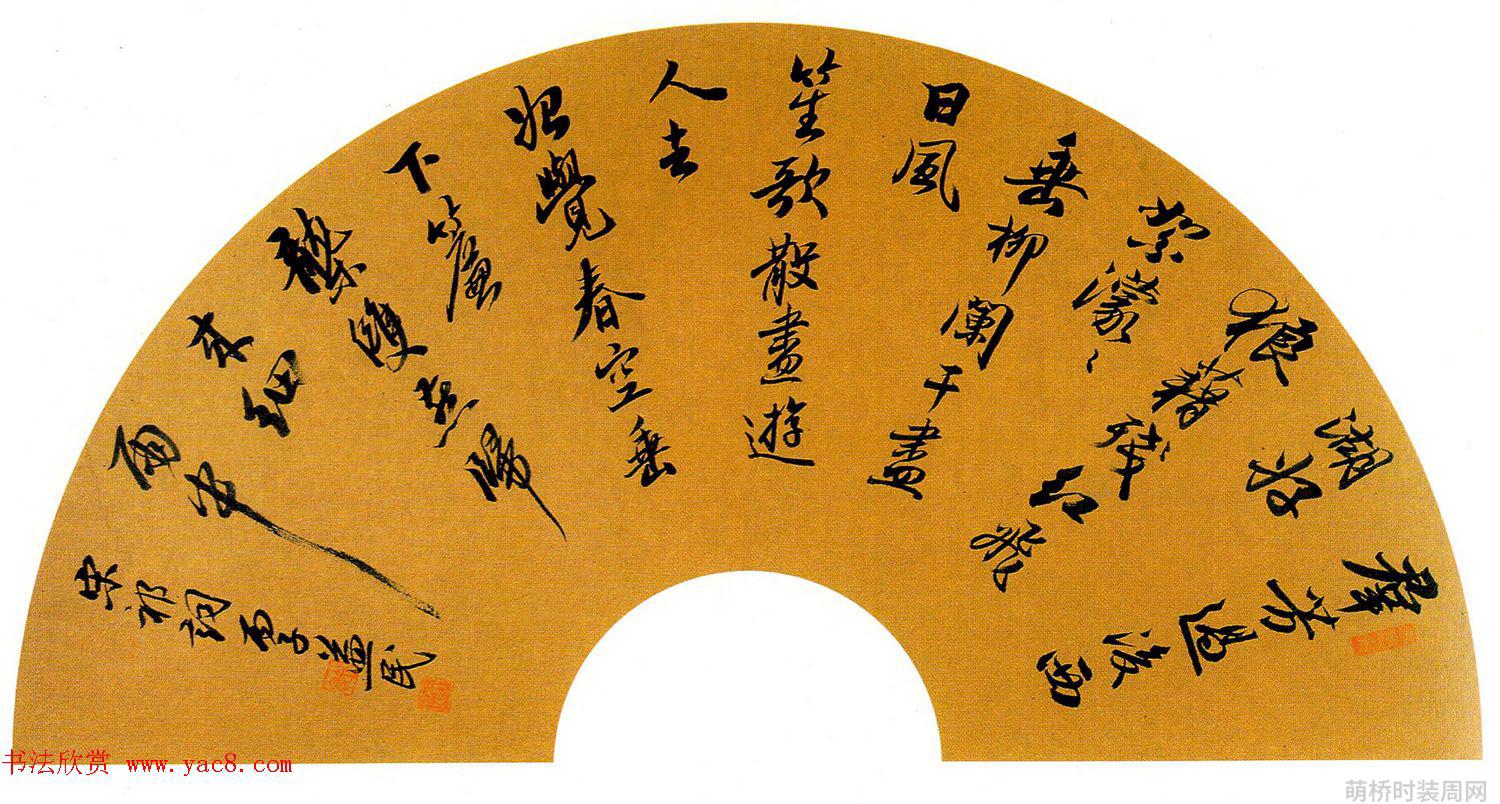 羣芳過後西
湖好
狼藉殘紅飛
絮濛々
垂柳闌干盡
日風
笙歌散盡遊
人去
始覺春空垂
下簾
櫳雙燕歸
来細
雨中
宋 詞
书法欣赏 www.yac8.com
萌桥时装周网